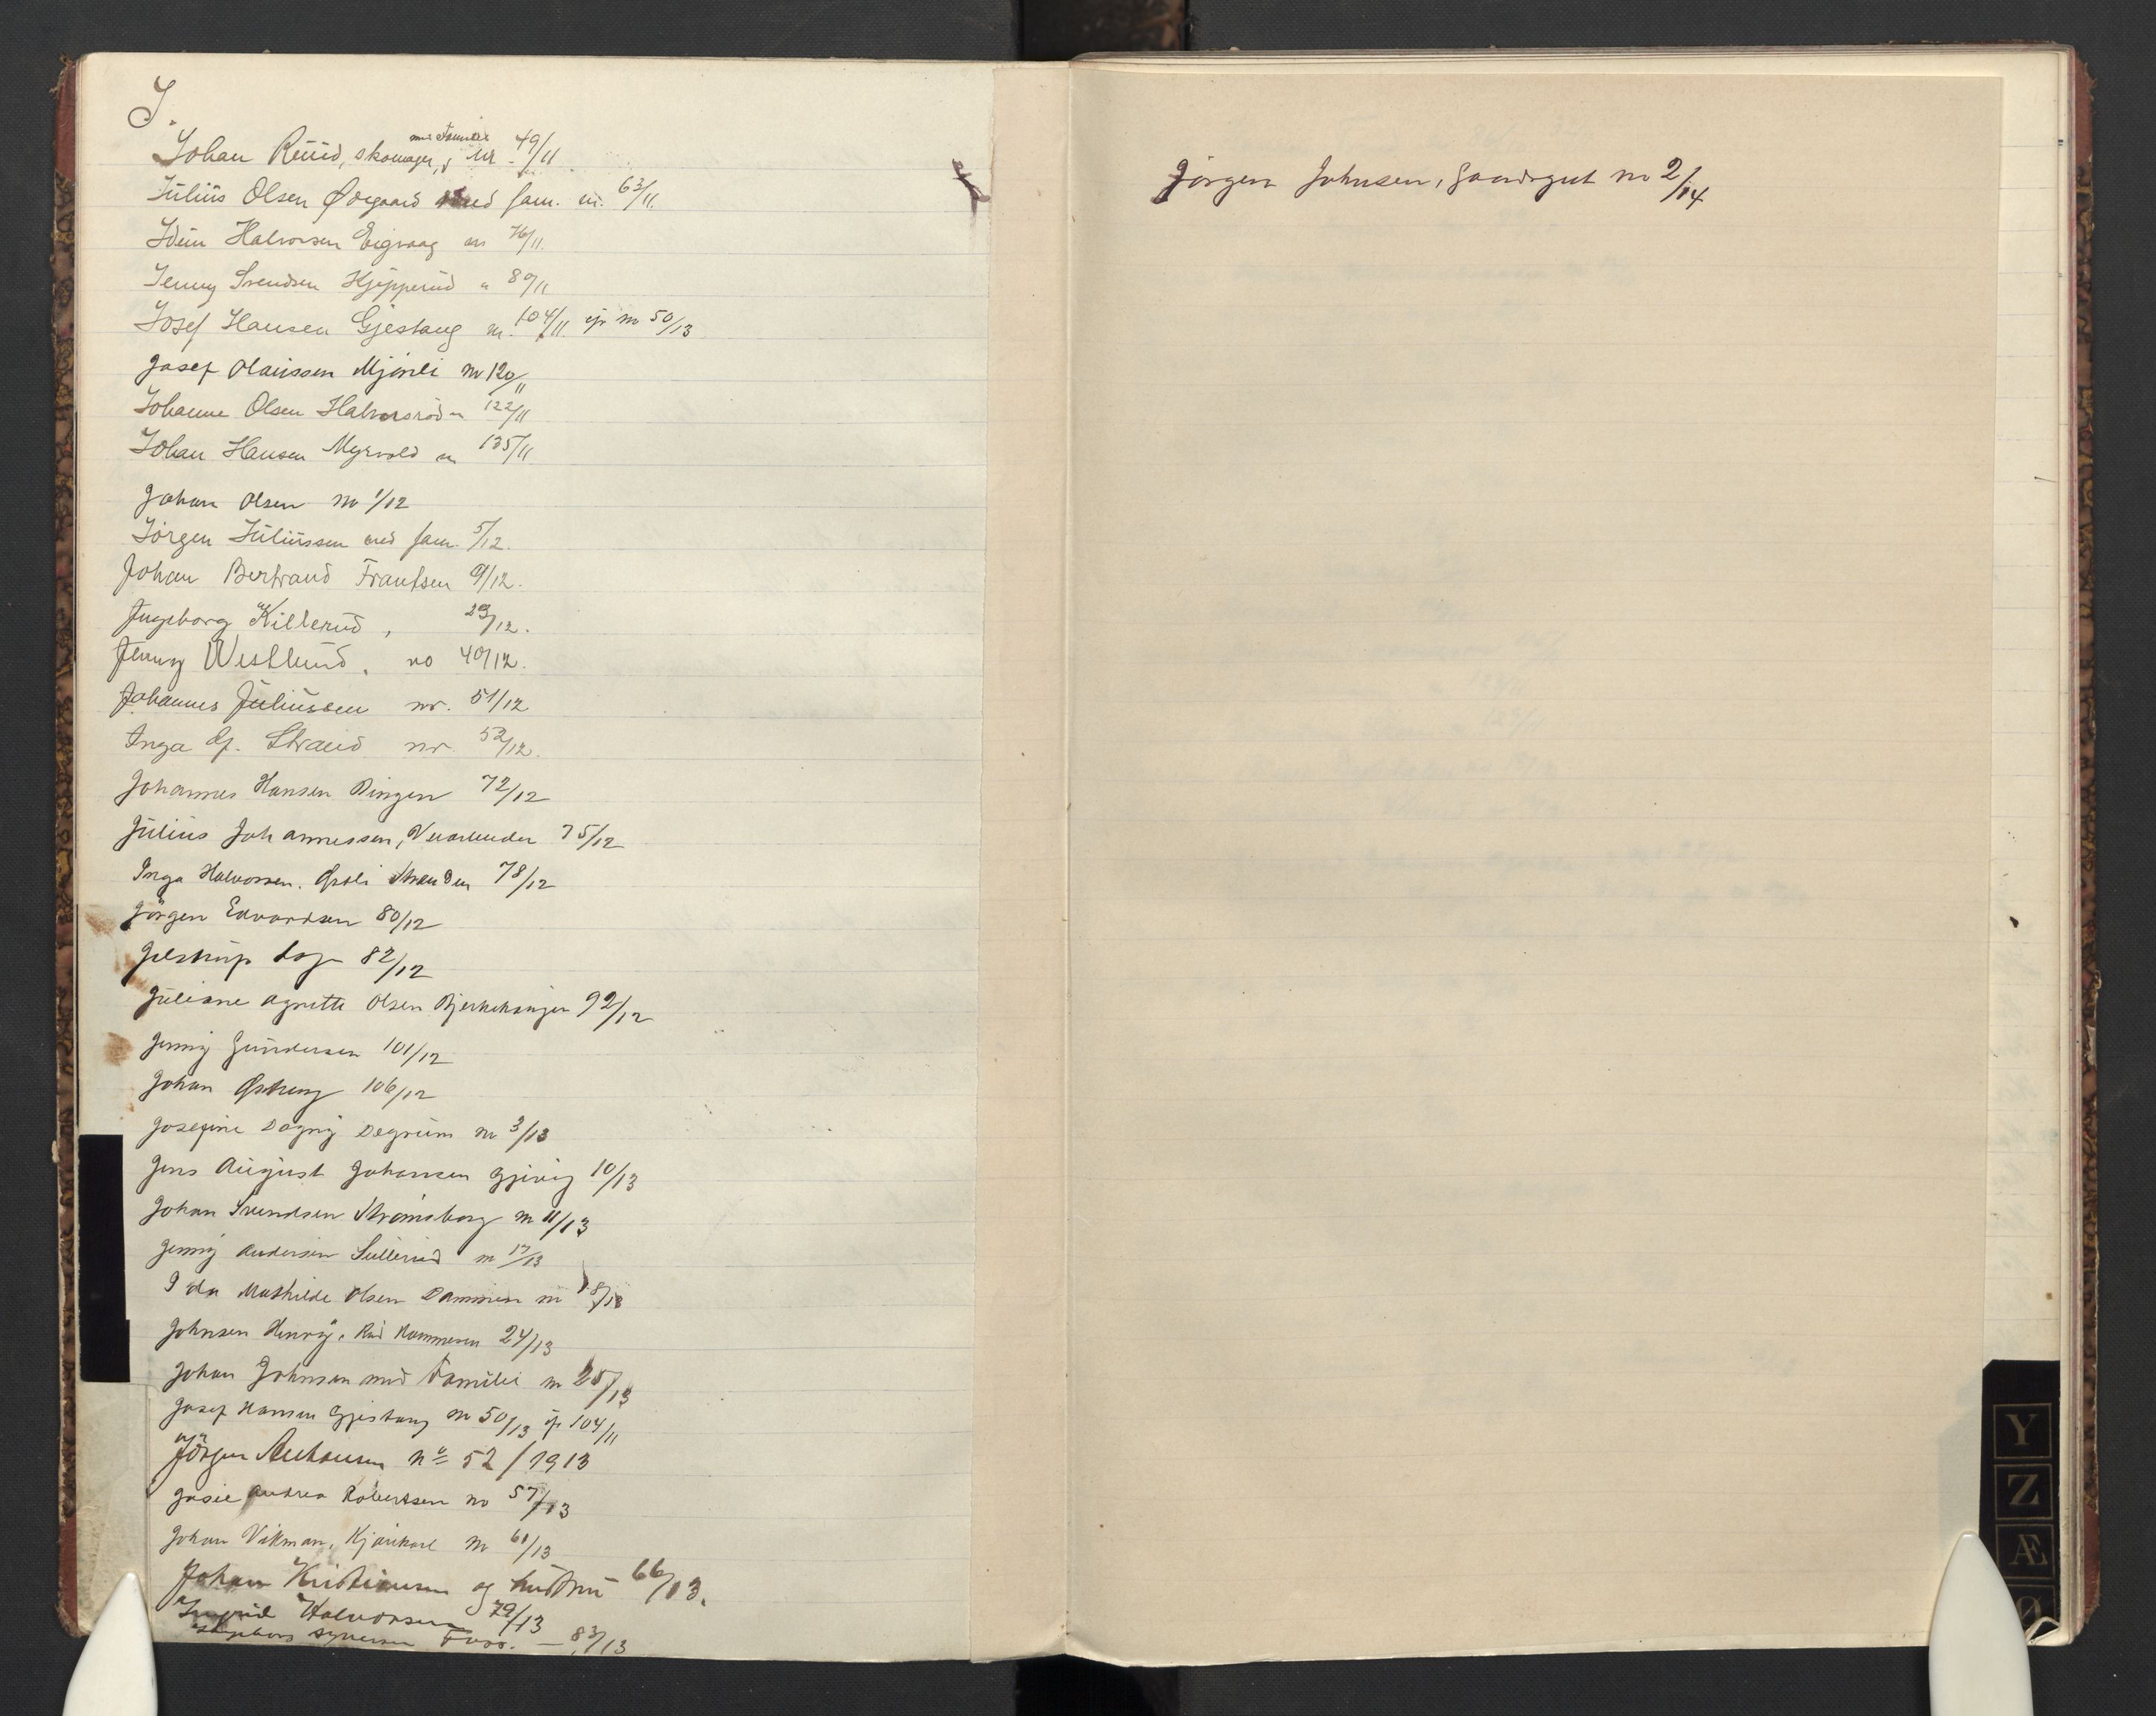 J.
Johan Ruud, skomager, med Familie nr 49/11
Julius Olsen Ørgaard med fam. nr. 63/11.
Halvorsen nr 76/11.
Jenny Svendsen Hjepperud " 89/11
Josef Hansen Gjestang nr. 104/11. cfr nr 50/13
Josef Olaussen Mjønli nr 120/11
Johanne Olsen Halvorsrød nr 122/11
Johan Hansen Myrvold nr 135/11
Johan Olsen nr 1/12
Jörgen Juliussen med fam. 5/12.
Johan Bertrand Frantsen 9/12.
Ingeborg Killerud, 29/12.
Jenny Westlund. no 40/12.
Johannes Juliussen nr. 51/12
Inga Strand nr. 52/12.
Johannes Hansen Ringen 72/12
Julius Johannessen, 75/12
Inga Halvorsen. 78/12
Jörgen Edvardsen 80/12
Jelstrup 82/12
Juliane Agnette Olsen 92/12
Jenny Gundersen 101/12
Johan 106/12
Josefine Dagny Degrum nr 3/13
Jens August Johansen Gjövig 10/13
Johan Svendsen Strömsborg nr 11/13
Jenny Andersen Sullerud nr 17/13
Ida Mathilde Olsen Dammen nr 18/13
Johnsen Henry, 24/13
Johan Johnsen med Familie nr 25/13
Josef Hansen Gjestang nr 50/13 cfr 104/11
Jörgen no 52/1913
Josie Andrea Robertsen no 57/13
Johan Vikman, nr 61/13
Johan Kristiansen og hustru 66/13.
Ingrid Halvorsen 79/13
Ingeborg Foss. — 83/13
Jörgen Johnsen, Gaardsgut no 2/14
Y
Z
Æ
Ø